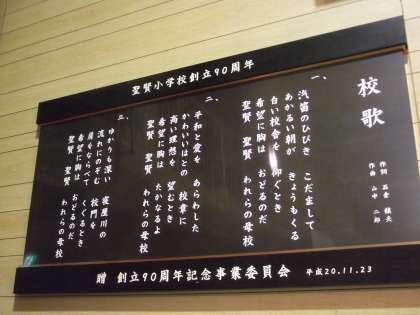 聖賢小学校創立90周年
校歌
作詞 石倉 頼夫
作曲 山中 二郎
一、
汽笛のひびき こだまして
あかるい朝が きょうもくる
白い校舎を 仰ぐとき
希望に胸は おどるのだ
聖賢 聖賢 われらの母校
二、
平和と愛を あらわした
かわいいはとの 校章に
高い理想を 望むとき
希望に胸は たかなるよ
聖賢 聖賢 われらの母校
三、
ゆかりも深い 寝屋川の
流れにのぞむ 校門を
肩をならべて くぐるとき
希望に胸は おどるのだ
聖賢 聖賢 われらの母校
贈 創立90周年記念事業委員会 平成20.11.23